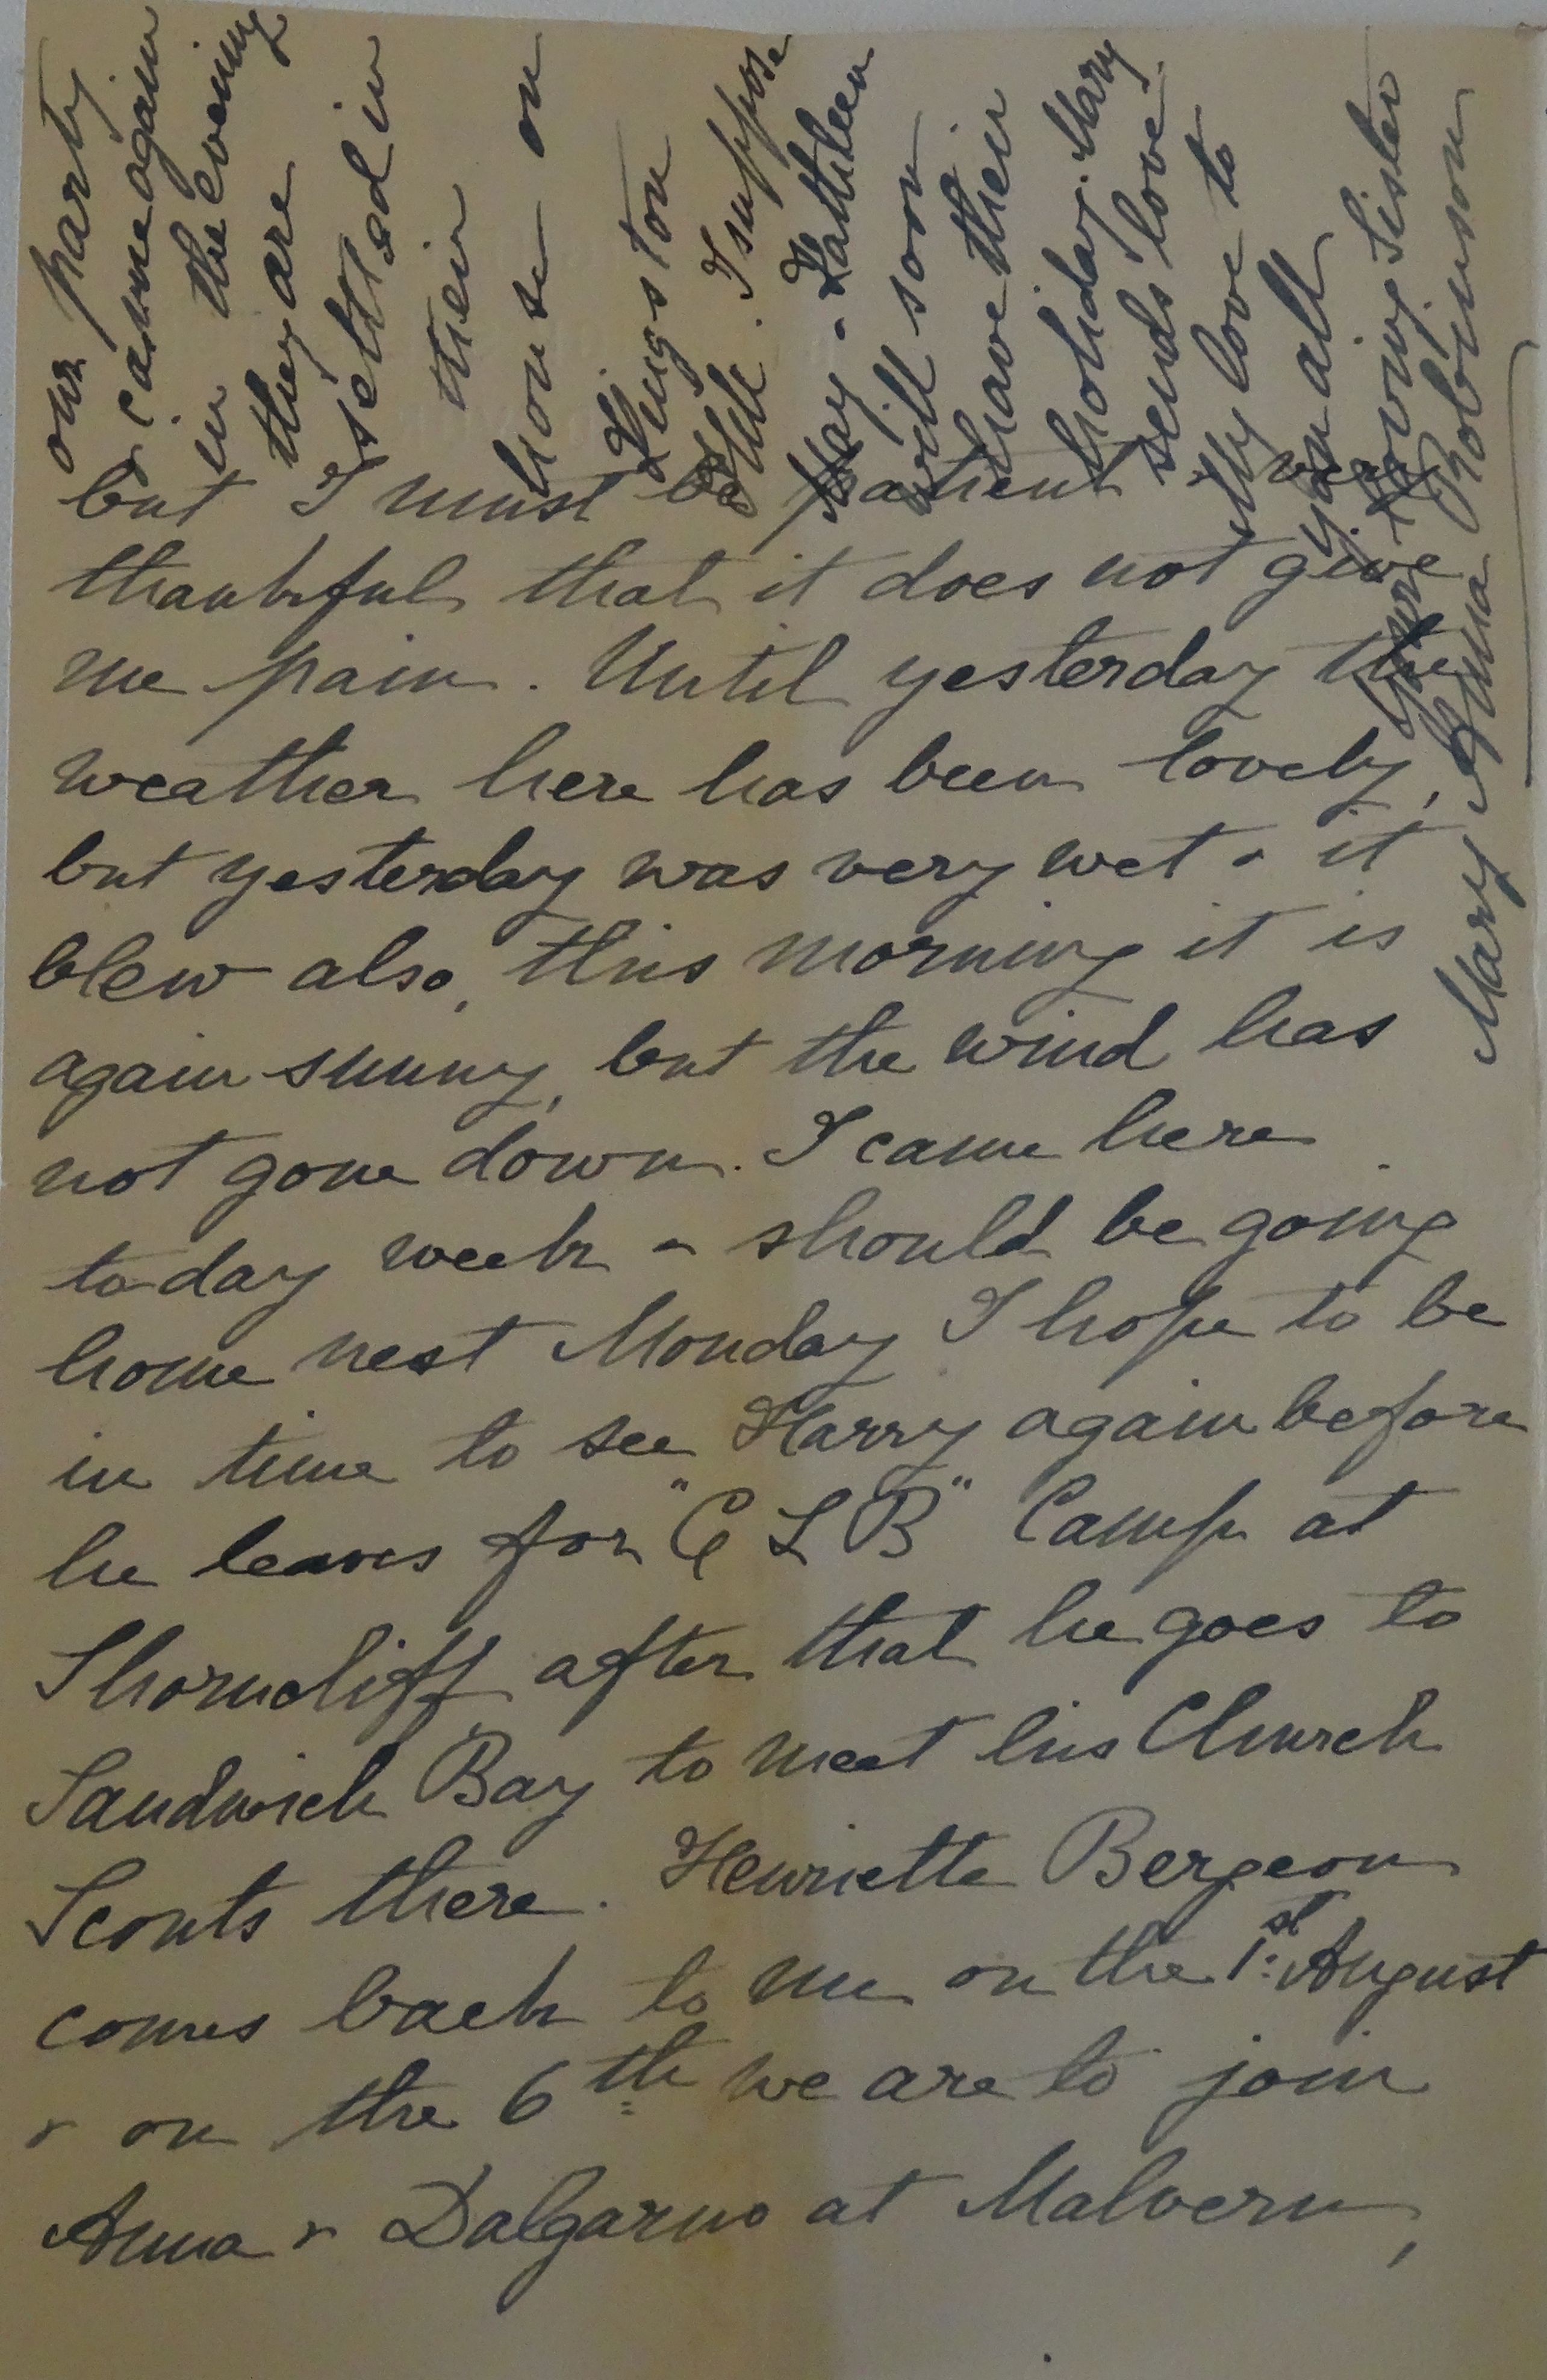 but I must be patient & very
thankful that it does not give
me pain. Until yesterday the
weather here has been lovely,
but yesterday was very wet & it
blew also, this morning it is
again sunny, but the wind has
not gone down. I came here
to day week & should be going
home next Monday I hope to be
in time to see Harry again before
he leaves for "C L B" Camp at
Shorncliff after that he goes to
Sandwich Bay to meet his Church
Scouts there. Henriette Bergeon
comes back to me on the 1st August
& on the 6th we are to join
Anna & Dalgarno at Malvern,
our party
& came again
in the evening
they are
settled in
their
house on
Kingston
Hill. I suppose
May & Kathleen
will soon
have their
holiday. Mary
sends love.
My love to
you all
Your loving Sister
Mary Anna Robinson